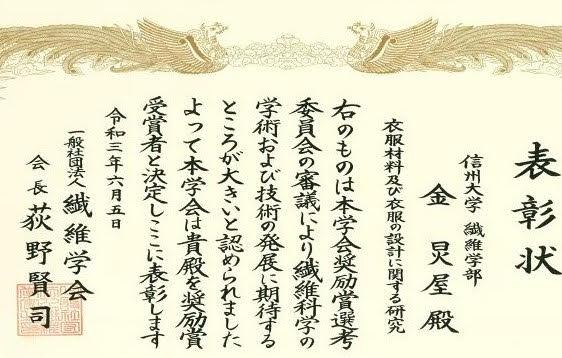 表彰状
信州大学 繊維学部
金 炅屋 殿
衣服材料及び衣服の設計に関する研究
右のものは本学会奨励賞選考
委員会の審議により繊維科学の
学術および技術の発展に期待する
ところが大きいと認められました
よって本学会は貴殿を奨励賞
受賞者と決定しここに表彰します
令和三年六月五日
一般社団法人 繊維学会
会長 荻野賢司